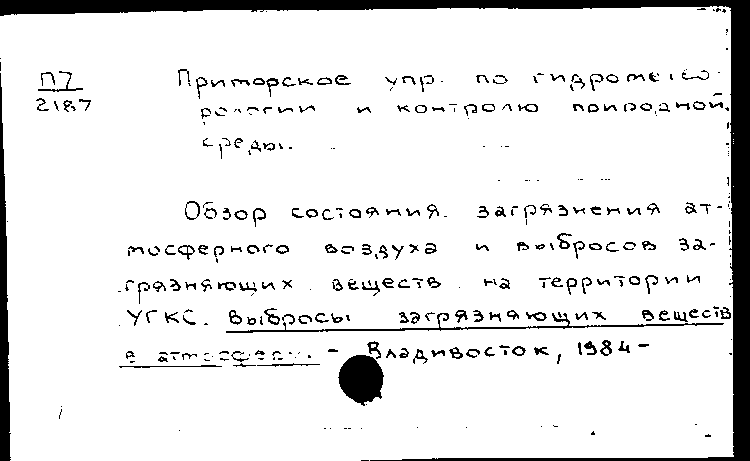 П7
2187
Приморское упр. по гидрометео-
рологии и контролю природной
среды.
Обзор состояния загрязнения ат-
мосферного воздуха и выбросов за-
грязняющих веществ на территории
УГКС. Выбросы загрязняющих веществ
в атмосферу. - Владивосток, 1984-